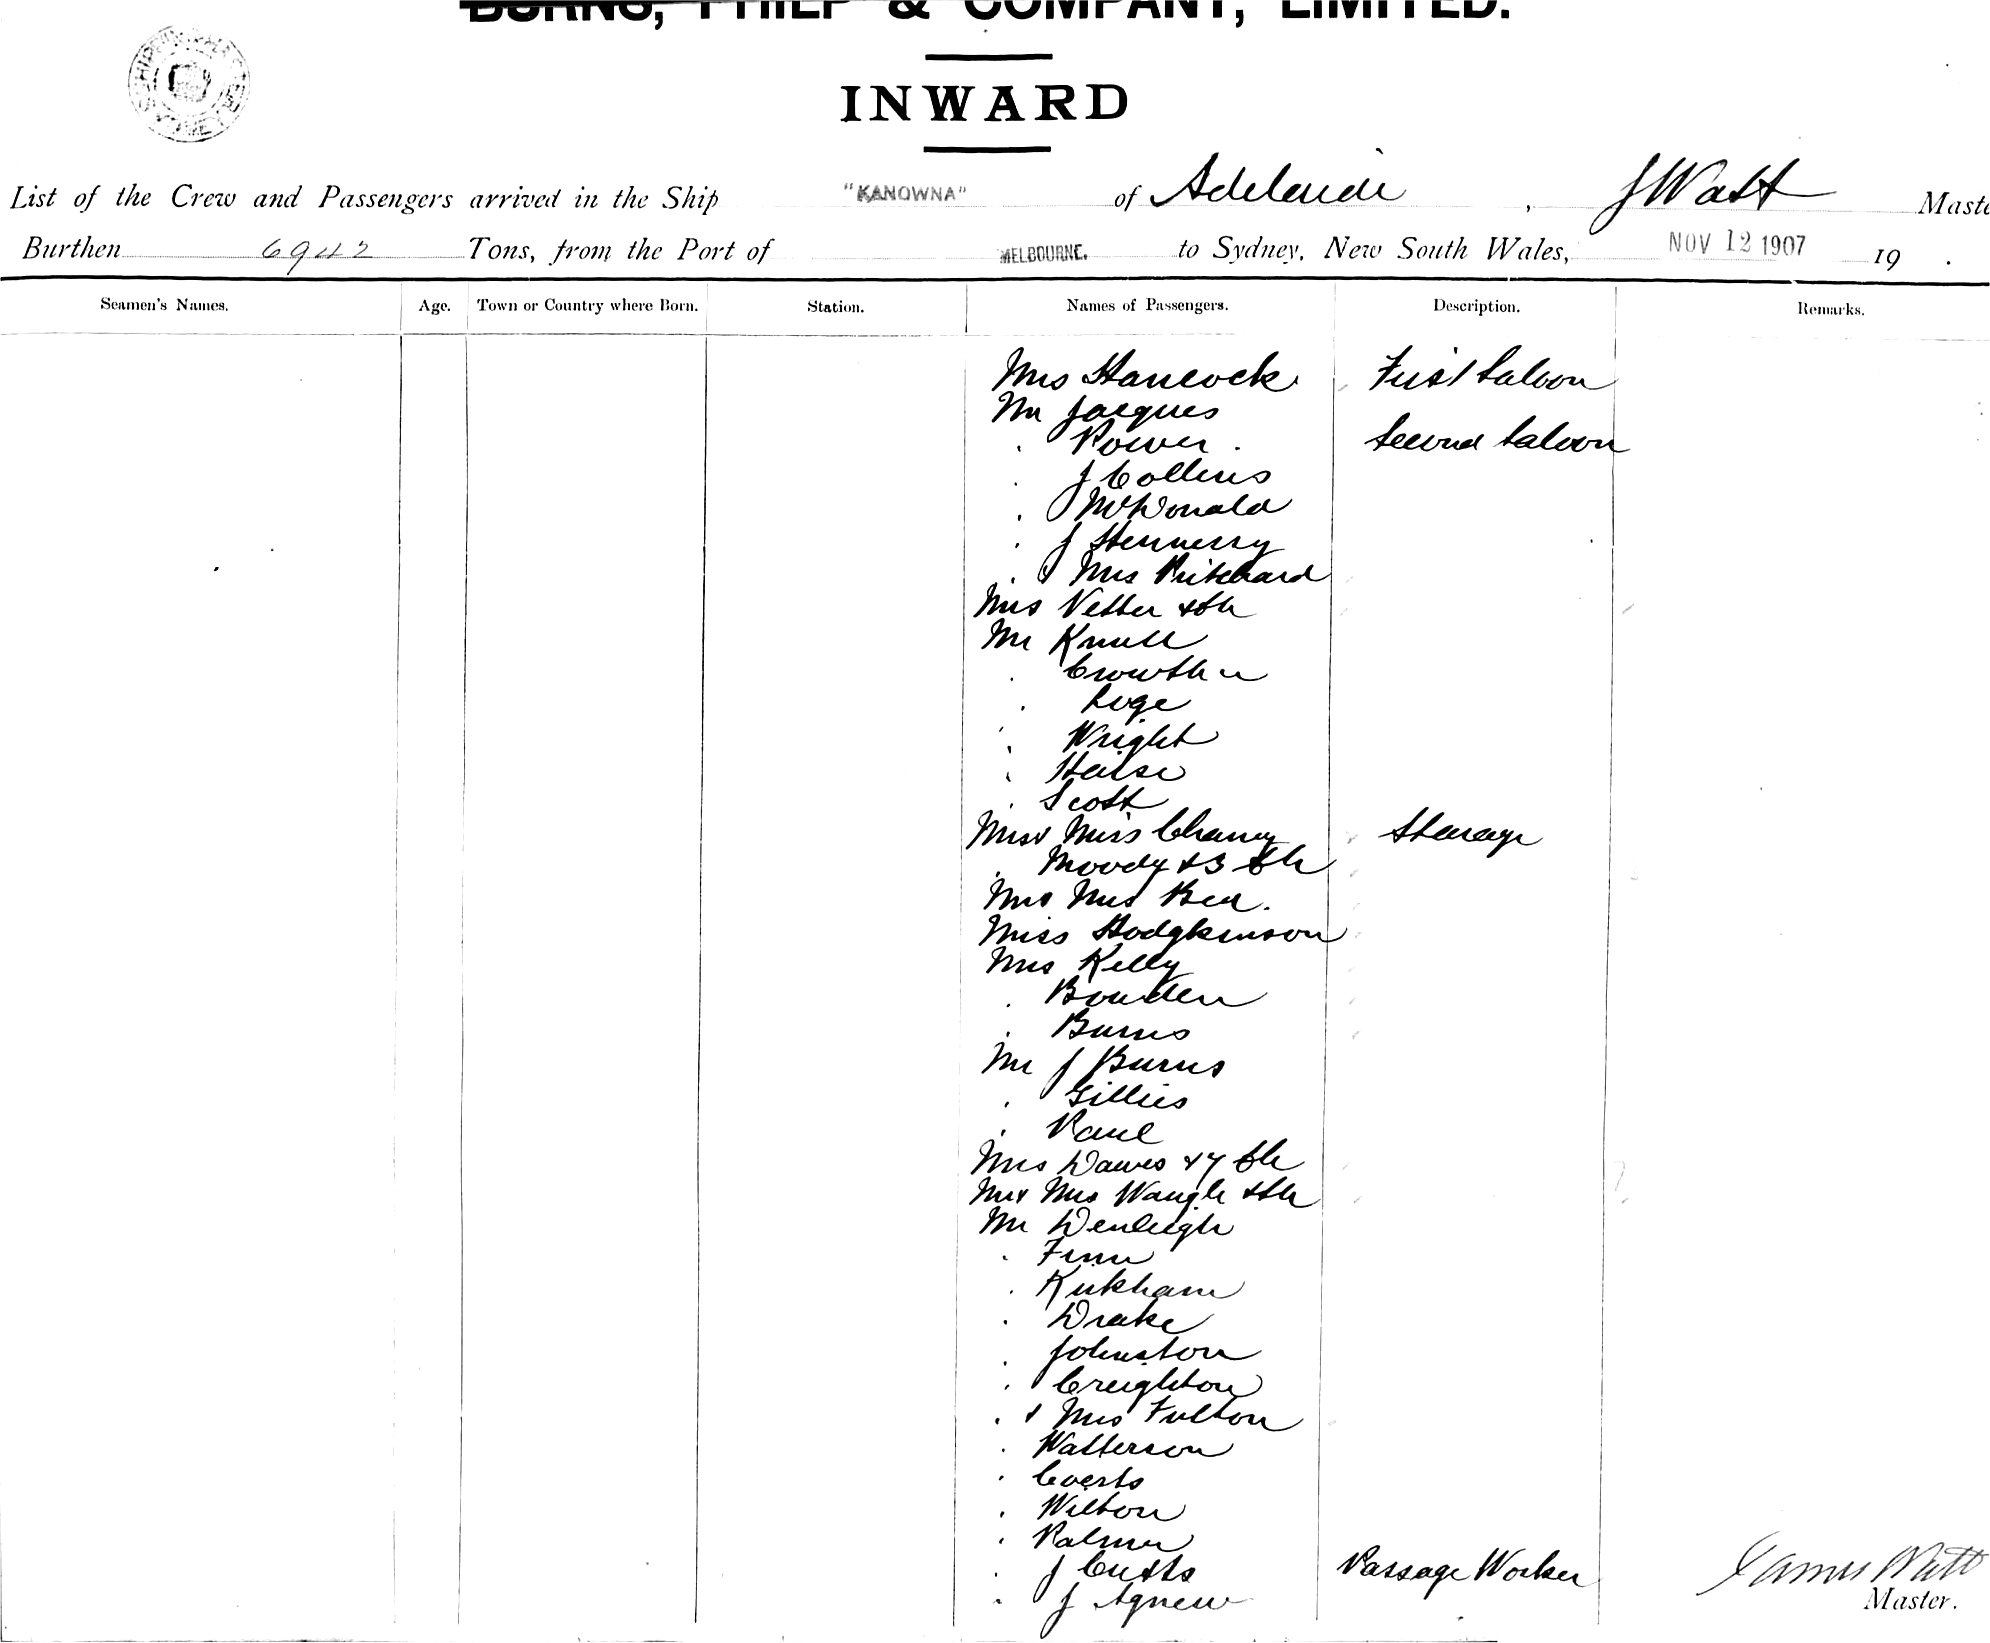 BURNS, PHILP & COMPANY, LIMITED.
INWARD
List of the Crew and Passengers arrived in the Ship "KANOWNA" of Adelaide, J Watt Maste
Burthen 6942 Tons, from the Port of MELBOURNE. to Sydney, New South Wales, NOV 12 1907 19 .
Seamen's Names. Age. Town or Country where Born. Station. Names of Passengers. Description. Remarks.
Mrs Hancock First Saloon
Mr Jacques
. Power. Second Saloon
. J Collins
. McDonald
. J Hennessy
. & Mrs Pritchard
Mrs Vetter & Ch
Mr Knull
. Crowther
. Loge
. Wright
. Halse
. Scott
Mrs & Miss Chaney Steerage
. Moody & 3 Ch
Mr & Mrs
Miss Hodgkinson
Mrs Kelly
. Bowden
. Burns
Mr J Burns
. Gillies
. Paul
Mrs Dawes & 7 Ch
Mr & Mrs Waugh & Ch
Mr Denleigh
. Finn
. Kirkham
. Drake
. Johnston
. Creighton
. & Mrs Fulton
. Watterson
. Coerts
. Wilton
. Palmer
. J Cutts Passage Worker
. J Agnew
James Watt
Master.